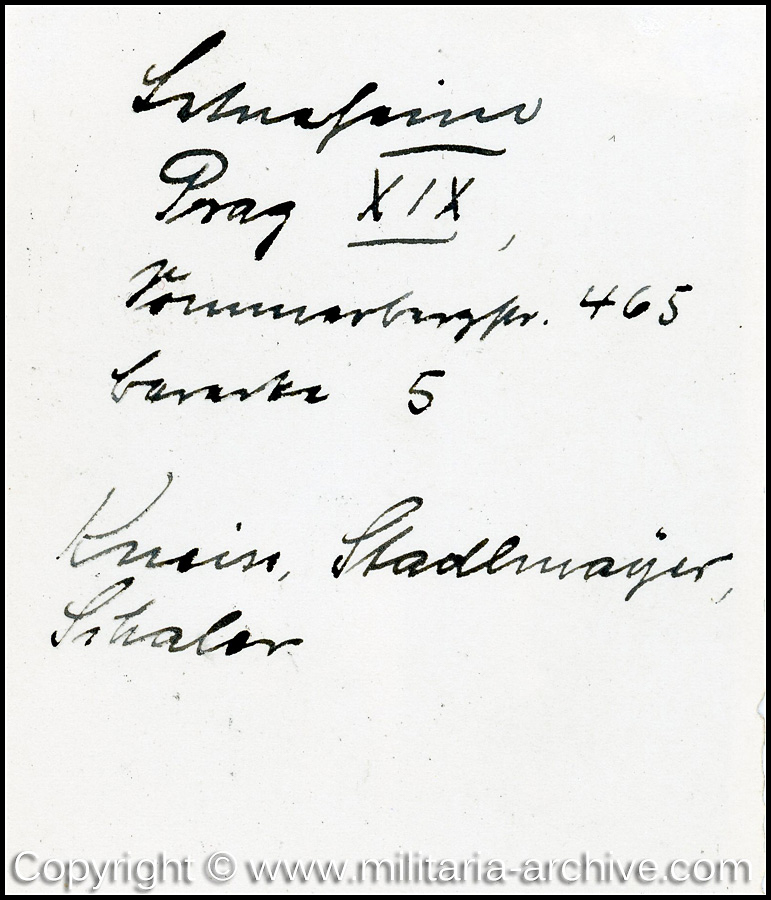 Prag XIX,
Sommerbergstr. 465
Baracke 5
Stadlmayer,
Schaler
Copyright © www.militaria-archive.com